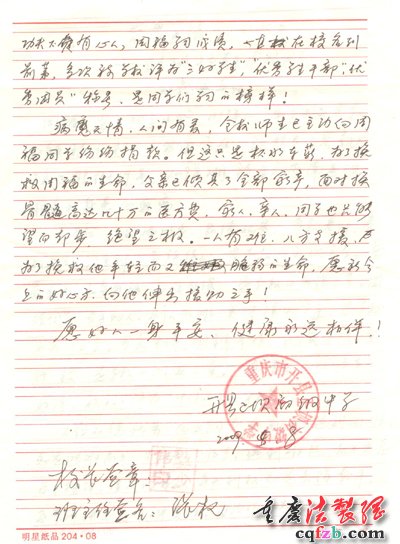 功夫不负有心人，周福的成绩，一直在校名列
前茅，多次被学校评为"三好学生"，"优秀学生干部"，"优
秀团员"称号，是同学们的榜样！
病魔无情，人间有爱，全校师生已主动向周
福同学纷纷捐款。但这只是杯水车薪，为了挽
救周福的生命，父亲已倾其了全部家产，面对换
骨髓高达几十万的医疗费，家人、亲人、同学也只能
望而却步，绝望之极。一人有难，八方支援，
为了挽救他年轻而又脆弱的生命，愿社会
上的好心人向他伸出援助之手！
愿好人一身平安，健康永远相伴！
重庆市开县
开县 中学
2009
校长签章：
班主任签名：张权
明星纸品 204·08
重庆法制网
cqfzb.com